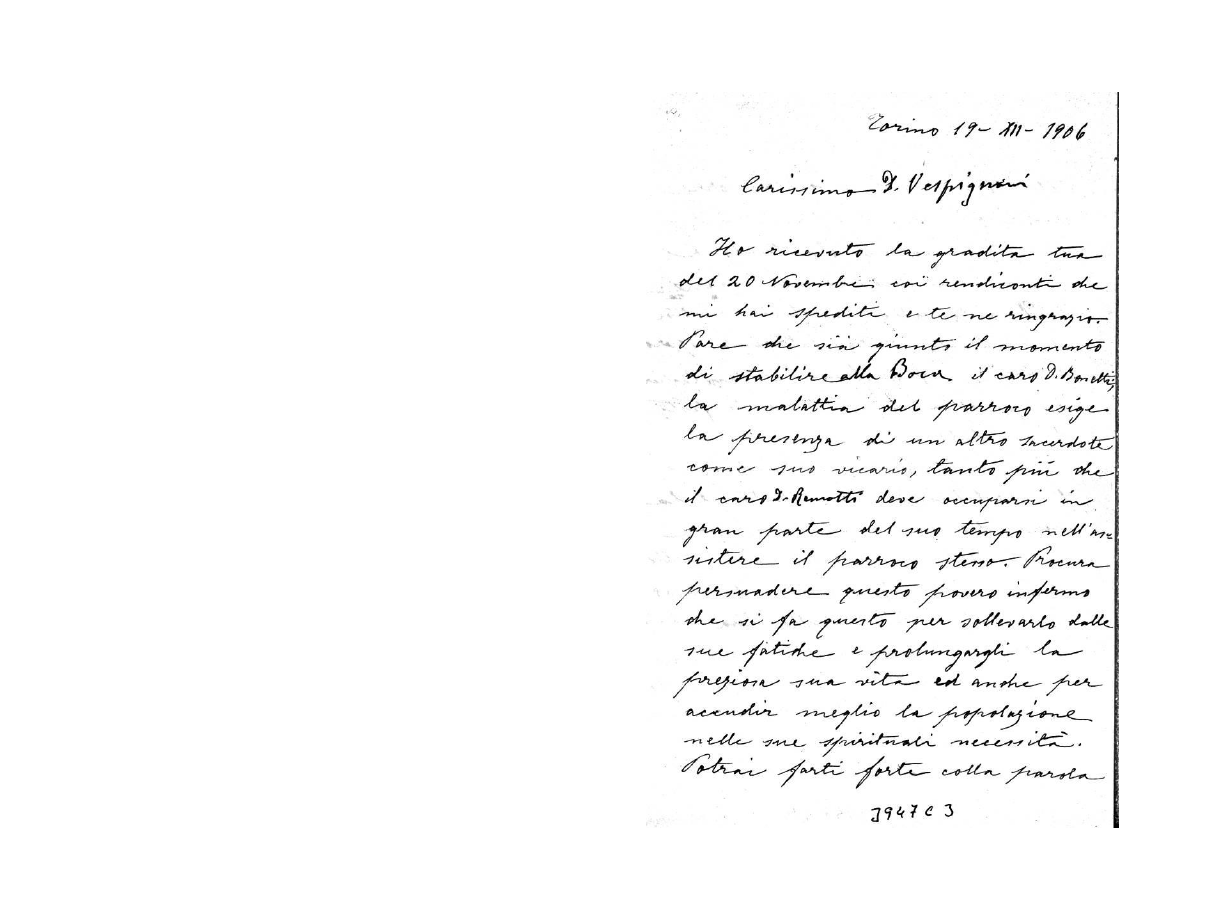 Torino 19 - XII - 1906
Carissimo D. Vespignani
Ho ricevuto la gradita tua
del 20 Novembre coi rendiconti che
mi hai spediti e te ne ringrazio.
Pare che sia giunto il momento
di stabilire alla Boca il caro D. Bonetti,
la malattia del parroco esige
la presenza di un altro sacerdote
come suo vicario, tanto più che
il caro D. Remotti deve occuparsi in
gran parte del suo tempo nell'as=
sistere il parroco stesso. Procura
persuadere questo povero infermo
che si fa questo per sollevarlo dalle
sue fatiche e prolungargli la
preziosa sua vita ed anche per
accudir meglio la popolazione
nelle sue spirituali necessità.
Potrai farti forte colla parola
3947 C 3